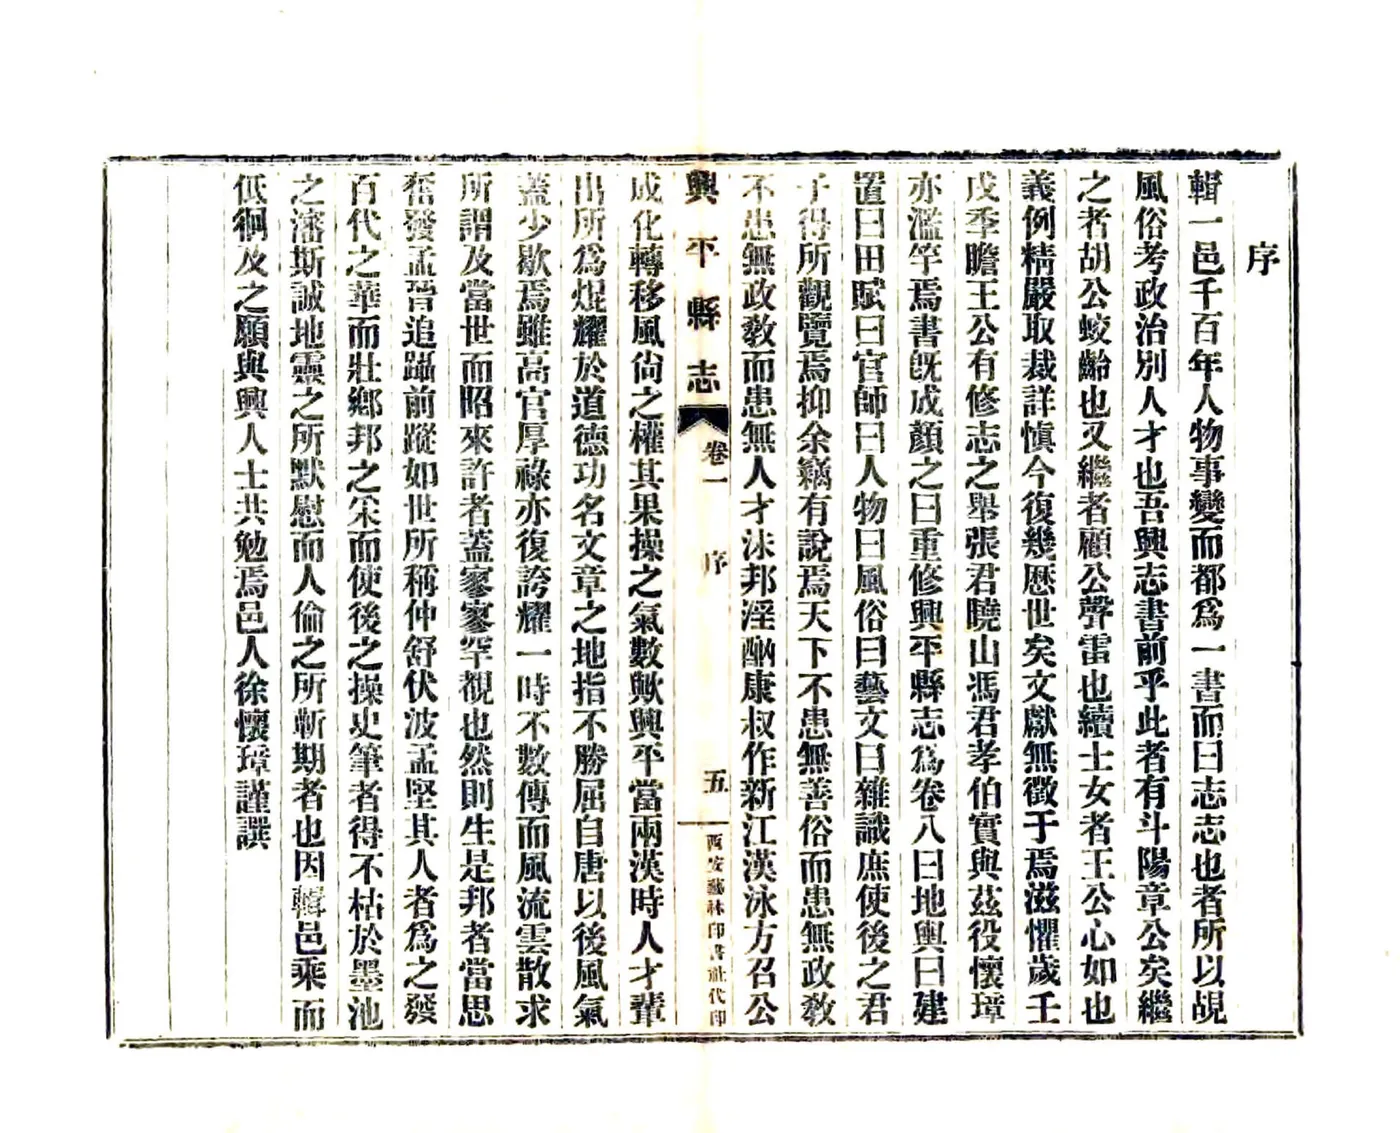 序
輯一邑千百年人物事變而都爲一書而曰志志也者所以覘
風俗考政治別人才也吾興志書前乎此者有斗陽章公矣繼
之者胡公蛟齡也又繼者顧公聲雷也續士女者王公心如也
義例精嚴取裁詳愼今復幾歷世矣文獻無徵于焉滋懼歲壬
戌季瞻王公有修志之舉張君曉山馮君孝伯實與茲役懷璋
亦濫竽焉書旣成顏之曰重修興平縣志爲卷八曰地輿曰建
置曰田賦曰官師曰人物曰風俗曰藝文曰雜識庶使後之君
子得所觀覽焉抑余竊有說焉天下不患無善俗而患無政敎
不患無政敎而患無人才沬邦淫酗康叔作新江漢泳方召公
興平縣志
卷一
序
五
西安藝林印書社代印
成化轉移風尙之權其果操之氣數歟興平當兩漢時人才輩
出所爲焜耀於道德功名文章之地指不勝屈自唐以後風氣
蓋少歇焉雖高官厚祿亦復誇耀一時不數傳而風流雲散求
所謂及當世而昭來許者蓋寥寥罕覩也然則生是邦者當思
奮發孟晉追躡前蹤如世所稱仲舒伏波孟堅其人者爲之發
百代之華而壯鄉邦之宷而使後之操史筆者得不枯於墨池
之瀋斯誠地靈之所默慰而人倫之所蘄期者也因輯邑乘而
低徊及之願與興人士共勉焉邑人徐懷璋謹譔